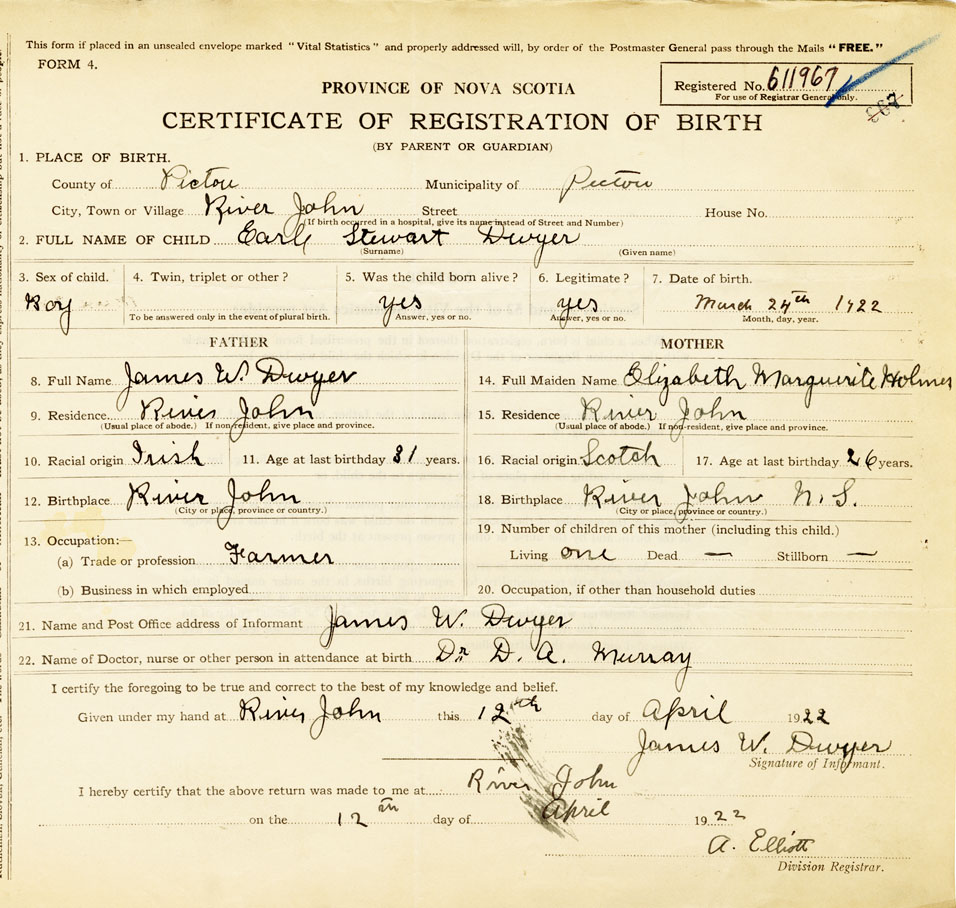 This form if placed in an unsealed envelope marked "Vital Statistics" and properly addressed will, by order of the Postmaster General pass through the Mails "FREE."
FORM 4.
Registered No. 611967
For use of Registrar General only.
PROVINCE OF NOVA SCOTIA
CERTIFICATE OF REGISTRATION OF BIRTH
(BY PARENT OR GUARDIAN)
1. PLACE OF BIRTH.
County of Pictou Municipality of Pictou
City, Town or Village River John Street House No.
(If birth occurred in a hospital, give its name instead of Street and Number)
2. FULL NAME OF CHILD Earle Stewart Dwyer
(Surname) (Given name)
3. Sex of child. 4. Twin, triplet or other? 5. Was the child born alive? 6. Legitimate? 7. Date of birth.
Boy yes yes March 24th 1922
To be answered only in the event of plural birth. Answer, yes or no. Answer, yes or no. Month, day, year.
FATHER MOTHER
8. Full Name James W. Dwyer 14. Full Maiden Name Elizabeth Marguerite Holmes
9. Residence River John 15. Residence River John
(Usual place of abode.) If non-resident, give place and province. (Usual place of abode.) If non-resident, give place and province.
10. Racial origin Irish 11. Age at last birthday 31 years. 16. Racial origin Scotch 17. Age at last birthday 26 years.
12. Birthplace River John 18. Birthplace River John N.S.
(City or place, province or country.) (City or place, province or country.)
19. Number of children of this mother (including this child.)
13. Occupation:—
(a) Trade or profession Farmer Living one Dead — Stillborn —
(b) Business in which employed 20. Occupation, if other than household duties
21. Name and Post Office address of Informant James W. Dwyer
22. Name of Doctor, nurse or other person in attendance at birth Dr D. A. Murray
I certify the foregoing to be true and correct to the best of my knowledge and belief.
Given under my hand at River John this 12th day of April 1922
James W. Dwyer
Signature of Informant.
I hereby certify that the above return was made to me at River John
on the 12th day of April 1922
A. Elliott
Division Registrar.